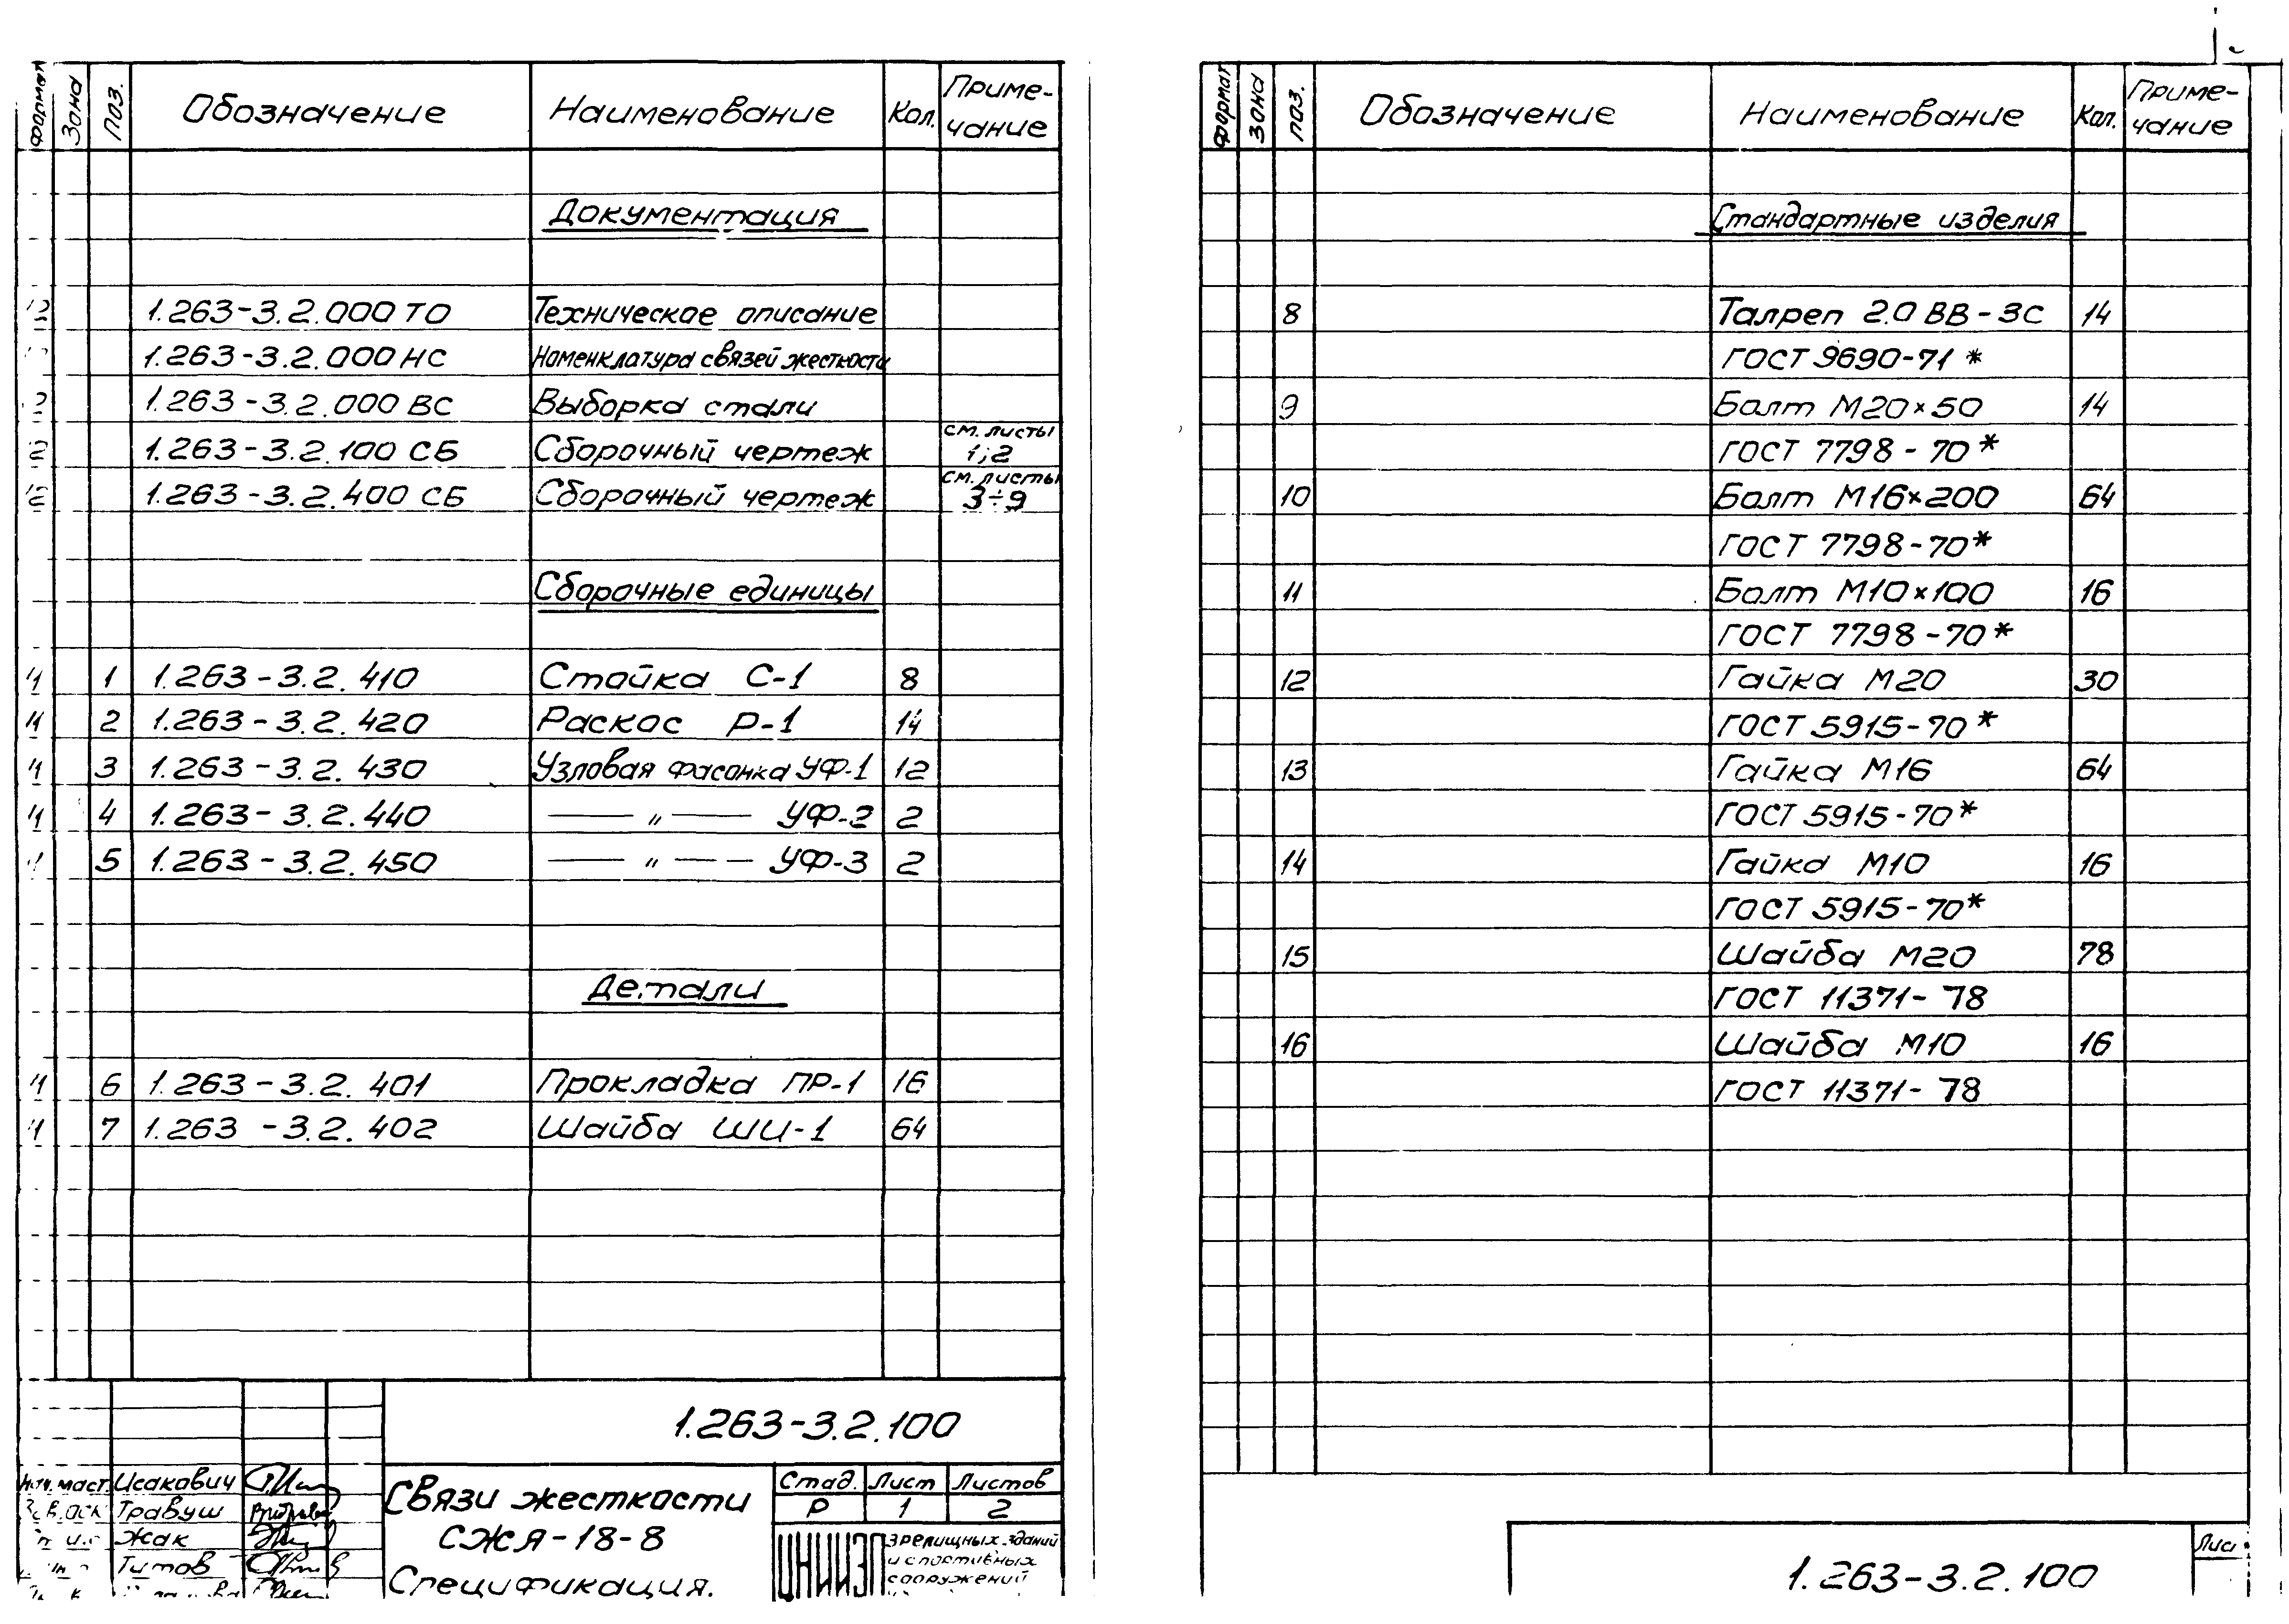 формат Зона Поз. Обозначение Наименование Кол. Приме-
чание
Документация
12 1.263-3.2.000 ТО Техническое описание
1.263-3.2.000 НС Номенклатура связей жесткости
1.263-3.2.000 ВС Выборка стали
1.263-3.2.100 СБ Сборочный чертеж см. листы
1;2
12 1.263-3.2.400 СБ Сборочный чертеж см. листы
3÷9
Сборочные единицы
11 1 1.263-3.2.410 Стойка С-1 8
11 2 1.263-3.2.420 Раскос Р-1 14
11 3 1.263-3.2.430 Узловая фасонка УФ-1 12
11 4 1.263-3.2.440 — " — УФ-2 2
5 1.263-3.2.450 — " — УФ-3 2
Детали
11 6 1.263-3.2.401 Прокладка ПР-1 16
11 7 1.263-3.2.402 Шайба ШЦ-1 64
1.263-3.2.100
маст. Исакович
Травуш
Жак
Титов
Связи жесткости
СЖЯ-18-8
Спецификация.
Стад. Лист Листов
Р 1 2
ЦНИИЭП зрелищных зданий
и спортивных
сооружений
формат Зона Поз. Обозначение Наименование Кол. Приме-
чание
Стандартные изделия
8 Талреп 2.0 ВВ-3С 14
ГОСТ 9690-71 *
9 Болт М20×50 14
ГОСТ 7798-70 *
10 Болт М16×200 64
ГОСТ 7798-70 *
11 Болт М10×100 16
ГОСТ 7798-70 *
12 Гайка М20 30
ГОСТ 5915-70 *
13 Гайка М16 64
ГОСТ 5915-70 *
14 Гайка М10 16
ГОСТ 5915-70 *
15 Шайба М20 78
ГОСТ 11371-78
16 Шайба М10 16
ГОСТ 11371-78
1.263-3.2.100
Лист